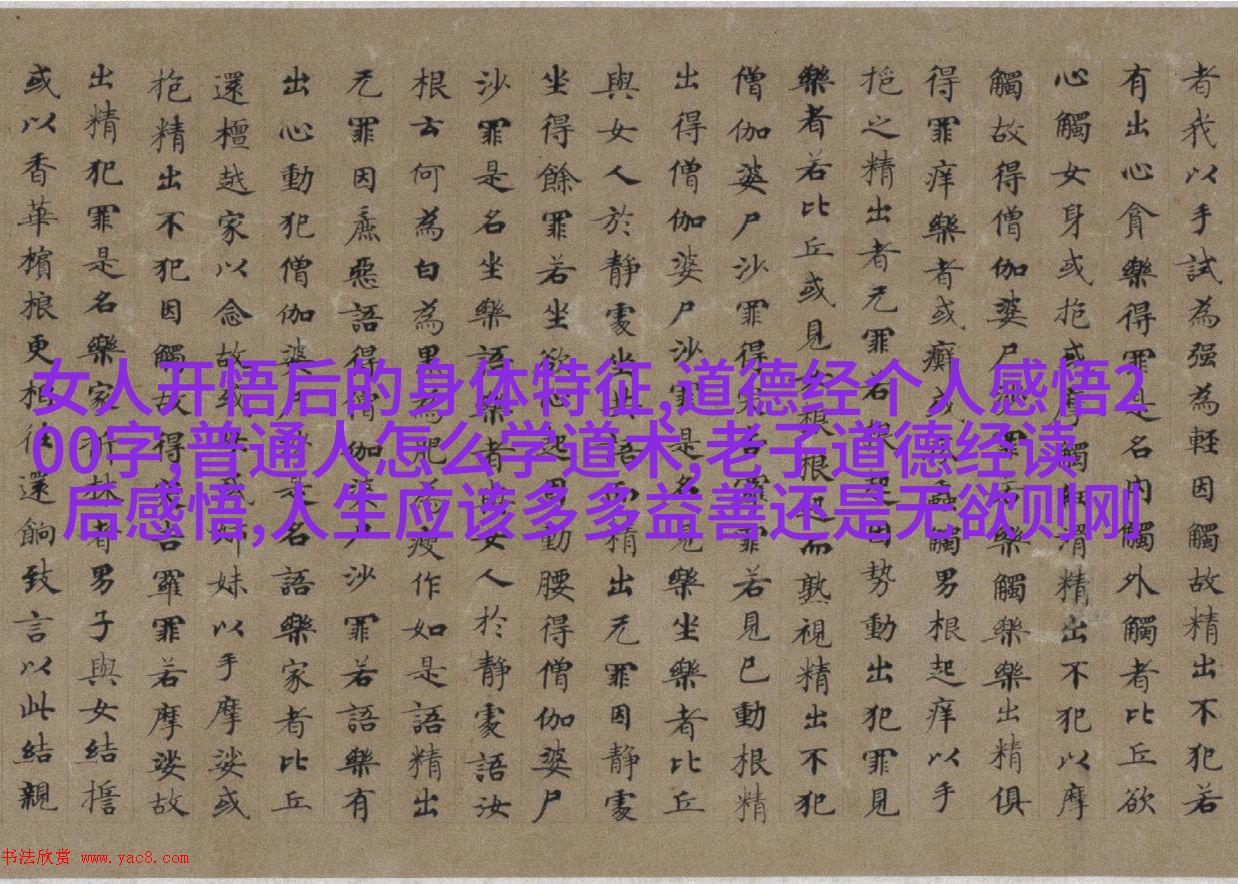 者我以手試為强為輕因觸故精出不犯若
有出心貪樂得罪是名内觸外觸者比丘欲
心觸女身或抱或摩觸謂精出不犯以摩
觸故得僧伽婆尸沙罪樂觸樂樂出精俱
得罪痒樂者或癬或觸男根起痒以手
捉之精出者无罪若勢動出犯罪見
樂者若比丘或見女根根而熟視精出不犯
僧伽婆尸沙罪得罪若見已動根精
出得僧伽婆尸沙罪是名見樂坐樂者比丘
與女人於静處坐精出无罪因静處
坐得餘罪若坐欲心起動腰得僧伽婆尸
沙罪是名坐樂語樂者女人於静處語汝
根云何為白為黑為肥為瘦作如是語精出
无罪因麁惡語得僧伽婆尸沙罪若語樂有
出心動犯僧伽婆尸是名語樂家者比丘
還檀越家以念故或妹以手摩娑或
抱精出不犯因觸故得罪若摩娑故
出精犯罪是名樂家折林者男子與女結誓
或以香華檳榔更相往還餉致言以此結親
女人开悟后的身体特征,道德经个人感悟2
00字,普通人怎么学道术,老子道德经读
后感悟,人生应该多多益善还是无欲则刚
书法欣赏 www.yac8.com